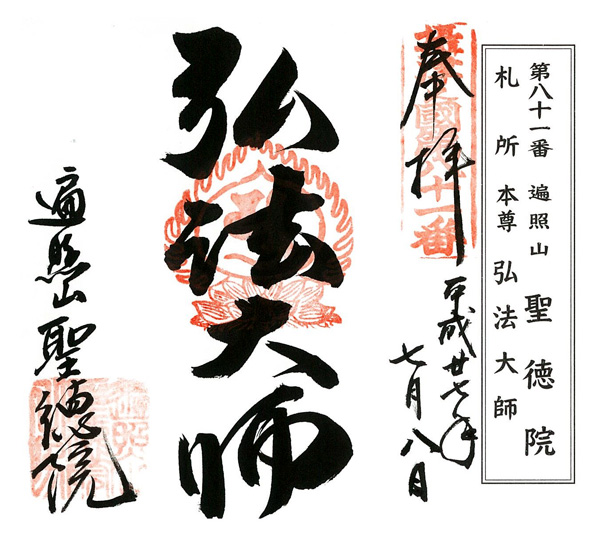 第八十一番 遍照山 聖徳院
札所本尊 弘法大師
奉拝
平成廿七年
七月八日
弘法大師
遍照山聖徳院